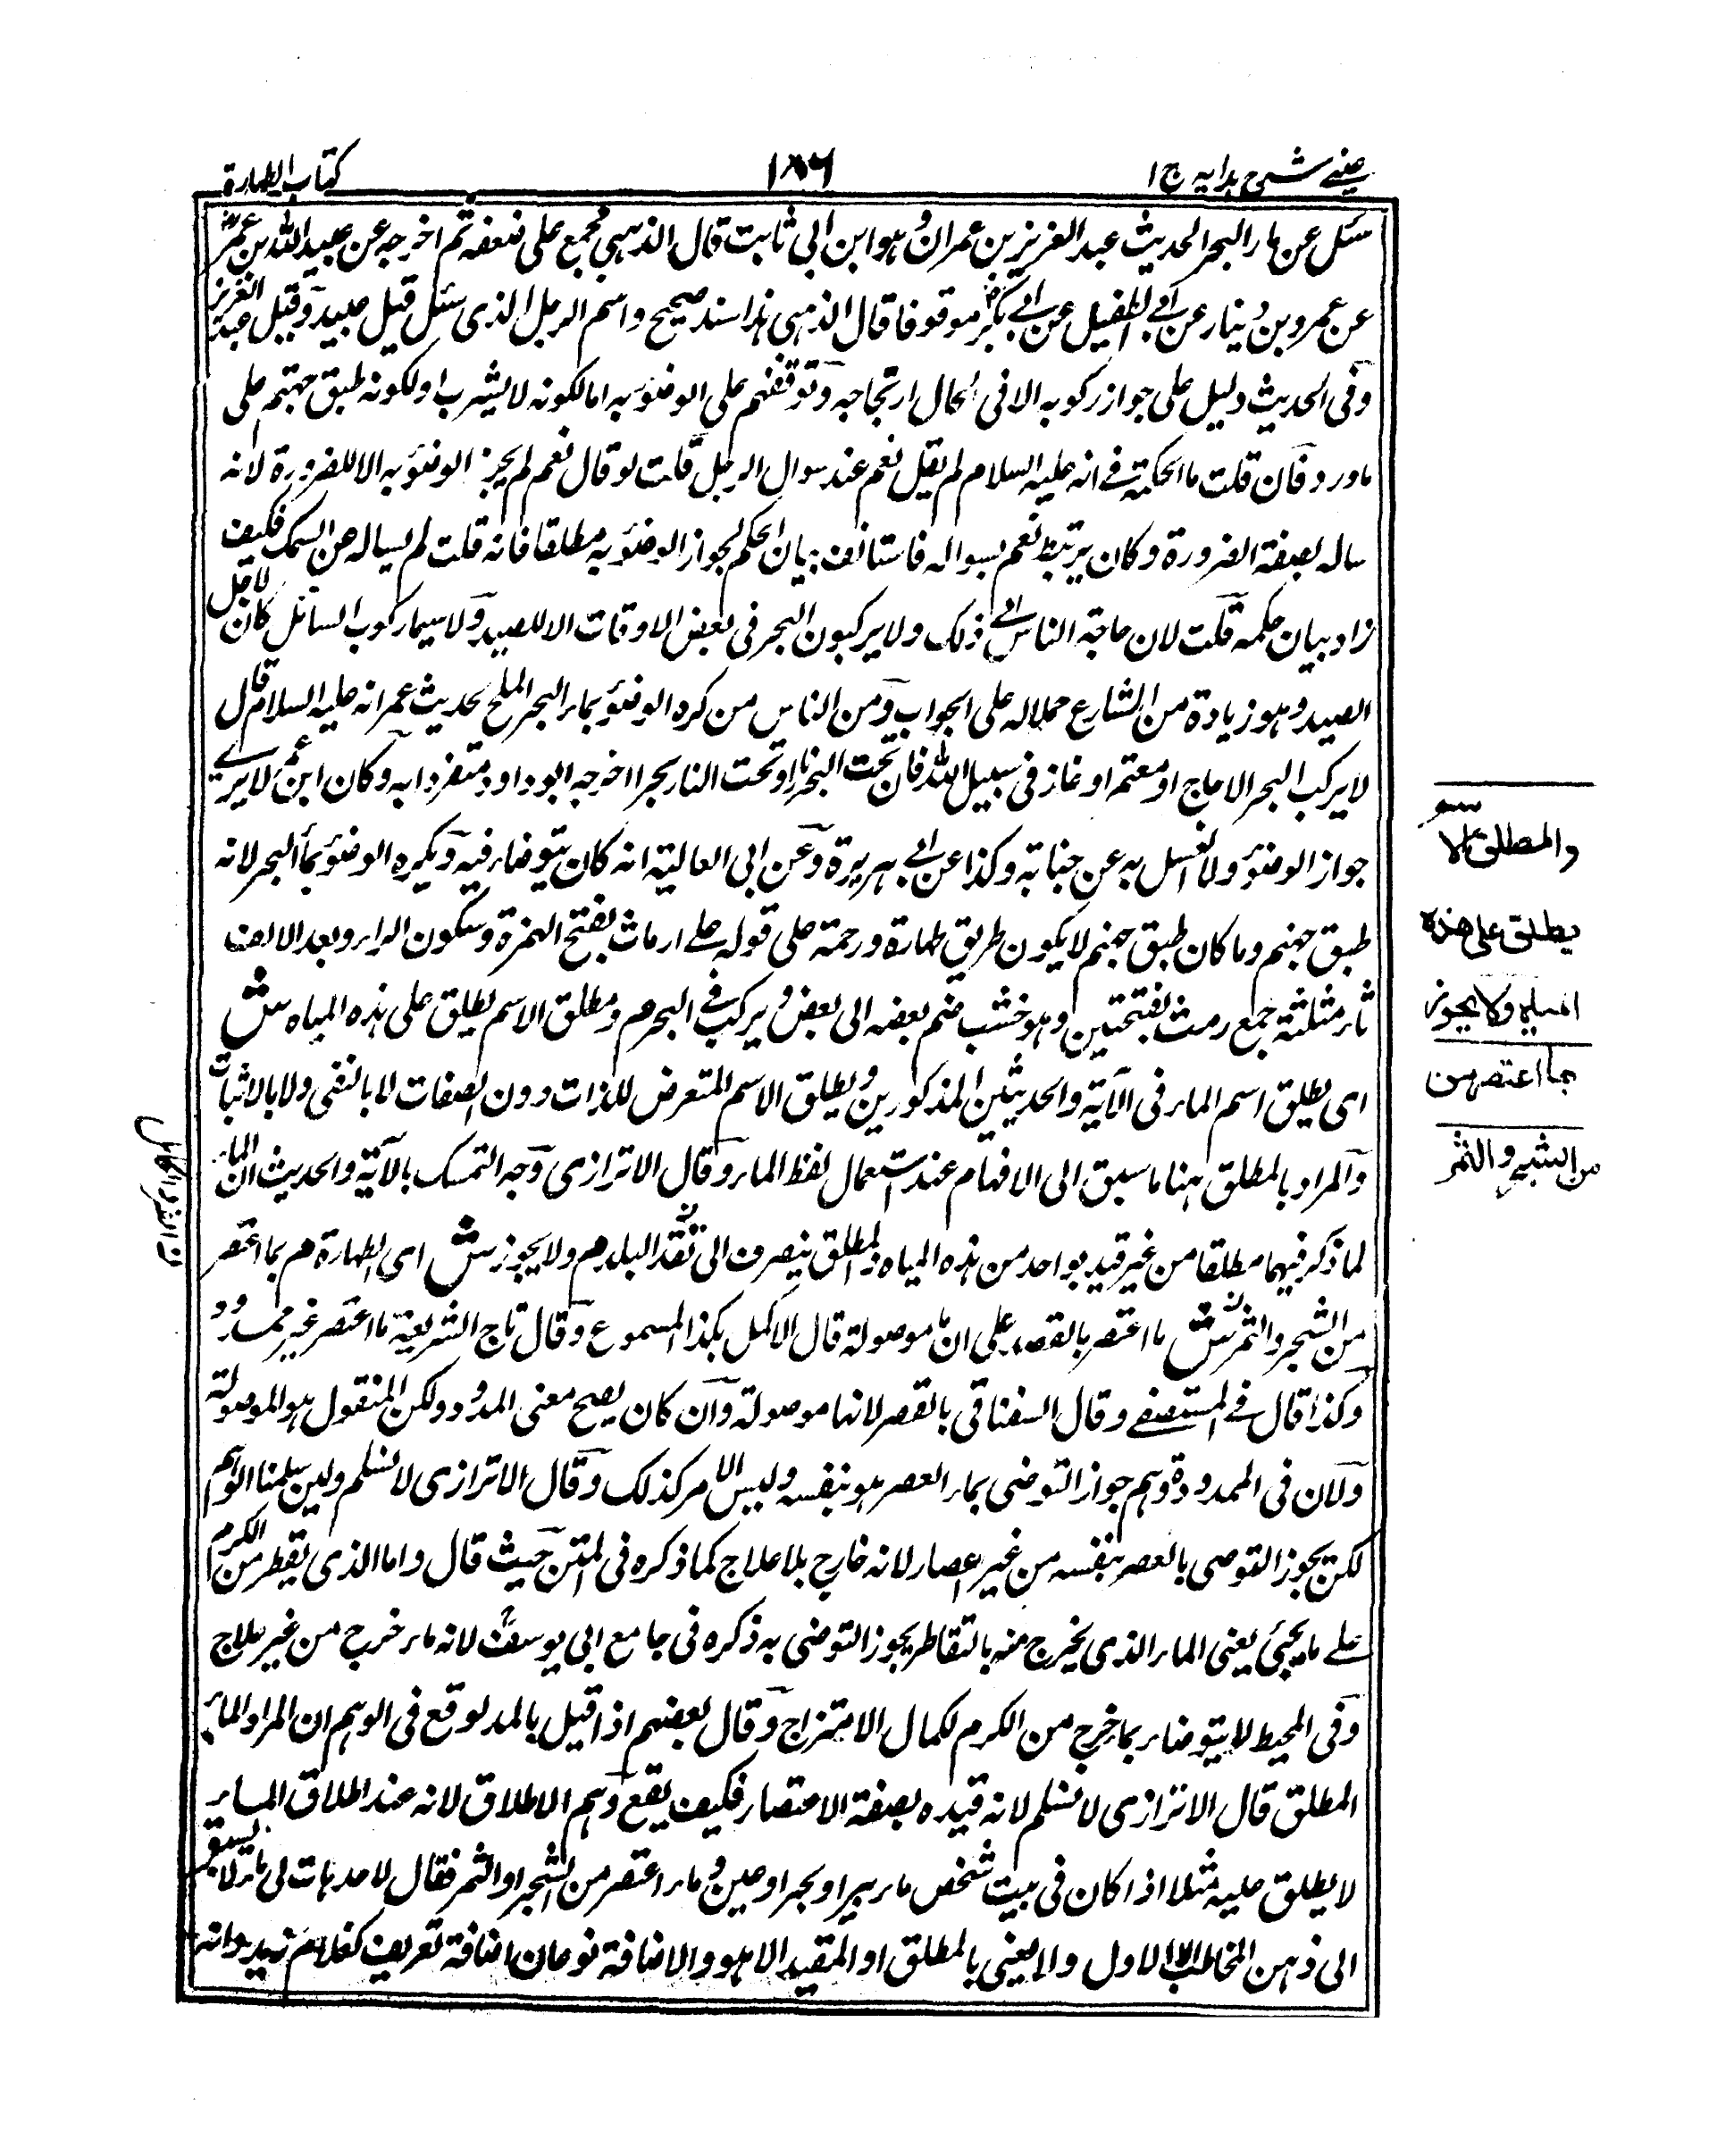 عینے شرح ہدایہ ج ۱
۱۸۶
كتاب الطهارة
سئل عن ماء البحر الحديث عبد العزيز بن عمران وهو ابن ابى ثابت قال الذهبى مجمع على ضعفه ثم اخرجه عن عبيد الله بن عمر
عن عمرو بن دينار عن ابى الطفيل عن ابى بكر موقوفا قال الذهبى هذا سند صحيح واسم الرجل الذى سئل قيل عبيد وقيل عبد العزيز
وفى الحديث دليل على جواز ركوبه الا فى حال ارتجاجه وتوقفهم على الوضوء به اما لكونه لا يشرب او لكونه طبق جهنم على
ما ورد فان قلت ما الحكمة فى انه عليه السلام لم يقل نعم عند سوال الرجل قلت لو قال نعم لم يجز الوضوء به الا للضرورة لانه
ساله بصفة الضرورة وكان يرتبط نعم بسواله فاستانف بيان الحكم لجواز الوضوء به مطلقا فانه قلت لم يساله عن السمك فكيف
زاد بيان حكمه قلت لان حاجة الناس الى ذلك ولا يركبون البحر فى بعض الاوقات الا للصيد ولا سيما ركوب السائل كان لاجل
الصيد وهو زيادة من الشارع حملا له على الجواب ومن الناس من كره الوضوء بماء البحر الملح لحديث عمر انه عليه السلام قال
لا يركب البحر الا حاج او معتمر او غاز فى سبيل الله فان تحت البحر نارا وتحت النار بحرا اخرجه ابو داود متفردا به وكان ابن عمر لا يرى
جواز الوضوء ولا الغسل به عن جنابة وكذا عن ابى هريرة وعن ابى العالية انه كان يتوضاء فيه ويكره الوضوء بماء البحر لانه
طبق جهنم وما كان طبق جهنم لا يكون طريق طهارة ورحمة على قوله على ارماث بفتح الهمزة وسكون الراء وبعد الالف
ثاء مثلثة جمع رمث بفتحتين وهو خشب ضم بعضه الى بعض ويركب فى البحر م ومطلق الاسم يطلق على هذه المياه ش
اى يطلق اسم الماء فى الآية والحديثين المذكورين ويطلق الاسم المتعرض للذات دون الصفات لا بالنفى ولا بالاثبات
والمراد بالمطلق ههنا ما سبق الى الافهام عند استعمال لفظ الماء وقال الاترازى وجه التمسك بالآية والحديث ان الماء
لما ذكر فيهما مطلقا من غير قيد بواحد من هذه المياه والمطلق ينصرف الى نقد البلد م ولا يجوز ش اى الطهارة م بما اعتصر
من الشجر والثمر ش ما اعتصر بالقصر على ان ما موصولة قال الاكمل هكذا المسموع وقال تاج الشريعة ما اعتصر غير ممدود
وكذا قال فى المستصفى وقال السغناقى بالقصر لانها موصولة وان كان يصح معنى المدود ولكن المنقول هو الموصولة
ولان فى الممدودة وهم جواز التوضى بماء العصر هو بنفسه وليس الامر كذلك وقال الاترازى لا نسلم ولين سلمنا الوهم
لكن يجوز التوضى بالعصر بنفسه من غير اعصار لانه خارج بلا علاج كما ذكره فى المتن حيث قال واما الذى يقطر من الكرم
على ما يجئ يعنى الماء الذى يخرج منه بالتقاطر يجوز التوضى به ذكره فى جامع ابى يوسف لانه ماء خرج من غير علاج
وفى المحيط لا يتوضاء بما خرج من الكرم لكمال الامتزاج وقال بعضهم اذا قيل بالمد لوقع فى الوهم ان المراد الماء
المطلق قال الاترازى لا نسلم لانه قيده بصفة الاعتصار فكيف يقع وهم الاطلاق لانه عند اطلاق الماء
لا يطلق عليه مثلا اذا كان فى بيت شخص ماء بير او بحر او عين وماء اعتصر من الشجر او الثمر فقال لاحد هات لى ماء لا يسبق
الى ذهن المخاطب الا الاول ولا معنى بالمطلق او المقيد الا هو والاضافة نوعان اضافة تعريف كغلام زيد وانه
والمطلق
يطلق على هذه
المياه ولا يجوز
بما اعتصر من
من الشجر والثمر